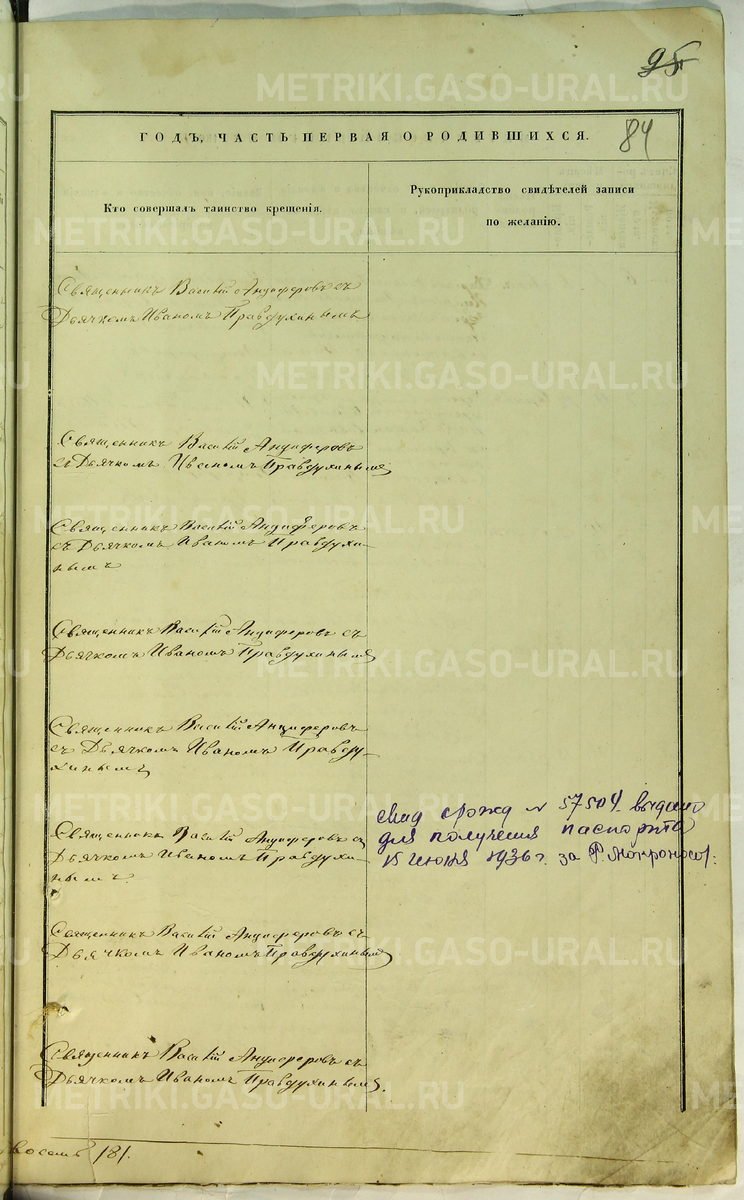 95
84
ГОДЪ, ЧАСТЬ ПЕРВАЯ О РОДИВШИХСЯ.
Кто совершалъ таинство крещенія.
Рукоприкладство свидѣтелей записи
по желанію.
Священникъ Василій Анциферовъ съ
Дьячкомъ Иваномъ Правдухинымъ
Священникъ Василій Анциферовъ
съ Дьячкомъ Иваномъ Правдухинымъ
Священникъ Василій Анциферовъ
съ Дьячкомъ Иваномъ Правдухи-
нымъ
Священникъ Василій Анциферовъ съ
Дьячкомъ Иваномъ Правдухинымъ
Священникъ Василій Анциферовъ
съ Дьячкомъ Иваномъ Правду-
хинымъ
Священникъ Василій Анциферовъ съ
Дьячкомъ Иваномъ Правдухи-
нымъ.
свид о рожд № 57504 выдано
для получения паспорта
15 июня 1936 г. за
Священникъ Василій Анциферовъ съ
Дьячкомъ Иваномъ Правдухинымъ
Священникъ Василій Анциферовъ съ
Дьячкомъ Иваномъ Правдухинымъ.
восемь /8/.
METRIKI.GASO-URAL.RU